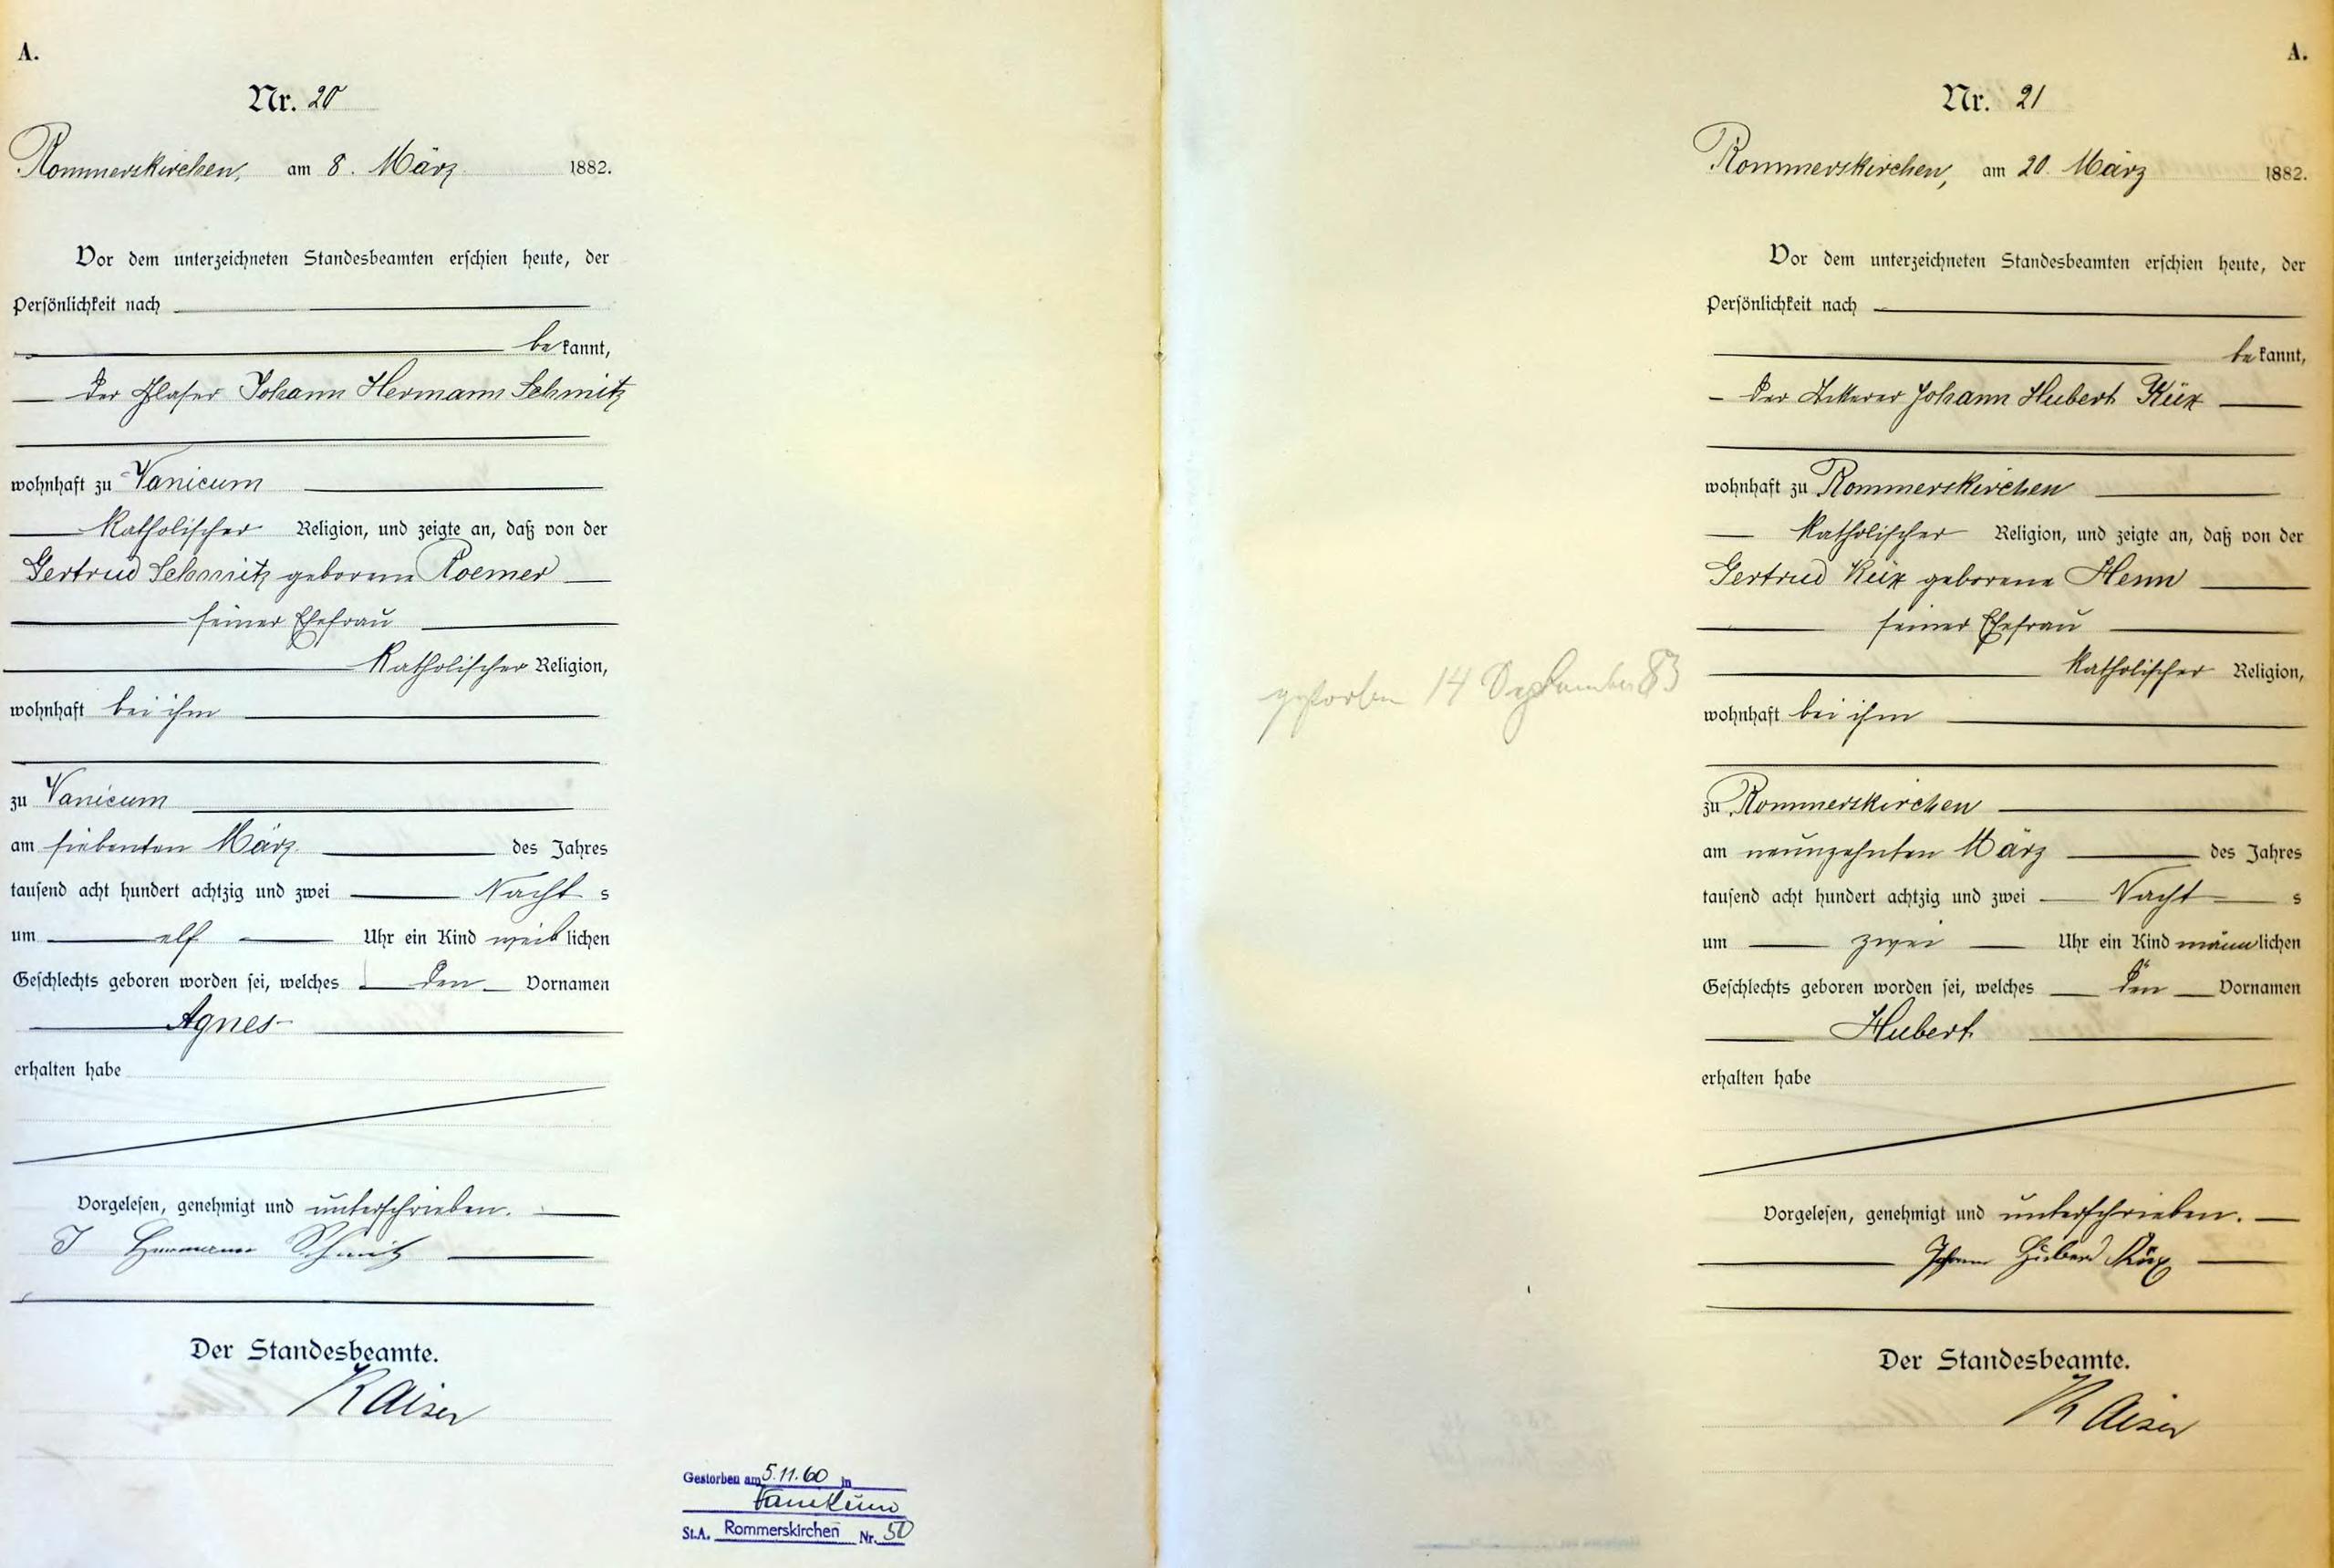 A.
Nr. 20
Rommerskirchen, am 8. März 1882.
Vor dem unterzeichneten Standesbeamten erschien heute, der
Persönlichkeit nach
bekannt,
der Glaser Johann Hermann Schmitz
wohnhaft zu Vanicum
katholischer Religion, und zeigte an, daß von der
Gertrud Schmitz geborene Roemer
seiner Ehefrau
katholischer Religion,
wohnhaft bei ihm
zu Vanicum
am siebenten März des Jahres
tausend acht hundert achtzig und zwei Nachts
um elf Uhr ein Kind weiblichen
Geschlechts geboren worden sei, welches den Vornamen
Agnes
erhalten habe
Vorgelesen, genehmigt und unterschrieben.
J Hermann Schmitz
Der Standesbeamte.
Kaiser
Gestorben am 5.11.60 in
Vanikum
St.A. Rommerskirchen Nr. 50
A.
Nr. 21
Rommerskirchen, am 20. März 1882.
Vor dem unterzeichneten Standesbeamten erschien heute, der
Persönlichkeit nach
bekannt,
der Ackerer Johann Hubert Küx
wohnhaft zu Rommerskirchen
katholischer Religion, und zeigte an, daß von der
Gertrud Küx geborene Henn
seiner Ehefrau
katholischer Religion,
gestorben 14 Dezember 83
wohnhaft bei ihm
zu Rommerskirchen
am neunzehnten März des Jahres
tausend acht hundert achtzig und zwei Nachts
um zwei Uhr ein Kind männlichen
Geschlechts geboren worden sei, welches den Vornamen
Hubert
erhalten habe
Vorgelesen, genehmigt und unterschrieben.
Johann Hubert Küx
Der Standesbeamte.
Kaiser